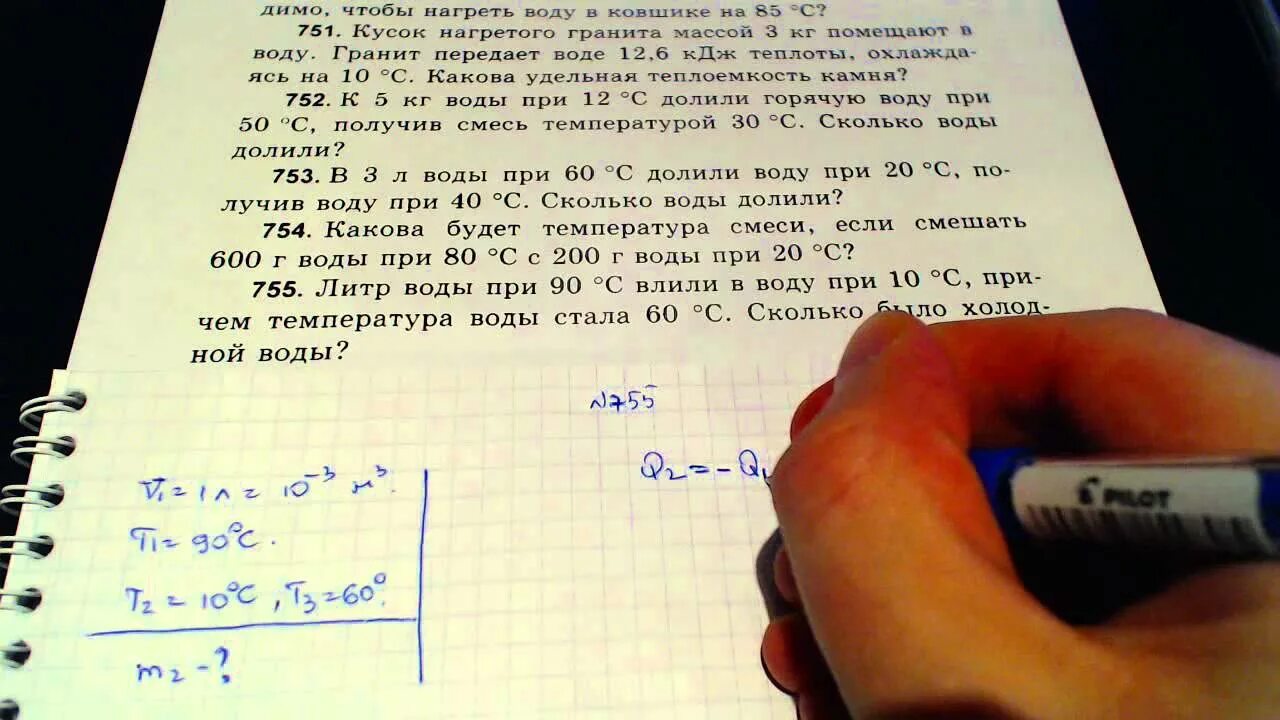 димо, чтобы нагреть воду в ковшике на 85 °С?
751. Кусок нагретого гранита массой 3 кг помещают в
воду. Гранит передает воде 12,6 кДж теплоты, охлажда-
ясь на 10 °С. Какова удельная теплоемкость камня?
752. К 5 кг воды при 12 °С долили горячую воду при
50 °С, получив смесь температурой 30 °С. Сколько воды
долили?
753. В 3 л воды при 60 °С долили воду при 20 °С, по-
лучив воду при 40 °С. Сколько воды долили?
754. Какова будет температура смеси, если смешать
600 г воды при 80 °С с 200 г воды при 20 °С?
755. Литр воды при 90 °С влили в воду при 10 °С, при-
чем температура воды стала 60 °С. Сколько было холод-
ной воды?
N755
V₁ = 1 л = 10⁻³ м³.
T₁ = 90°C.
T₂ = 10°C, T₃ = 60°.
m₂ - ?
Q₂ = - Q₁
PILOT